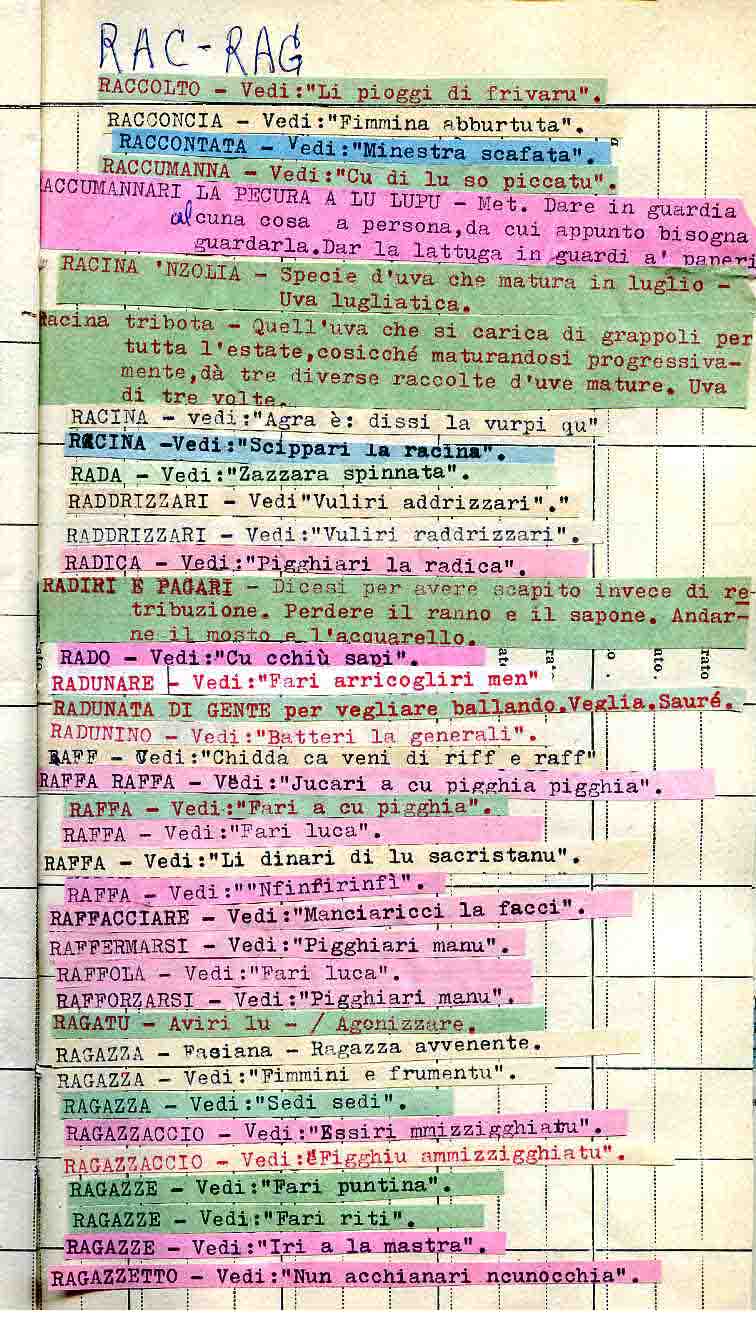 RAC-RAG
RACCOLTO - Vedi:"Li pioggi di frivaru".
RACCONCIA - Vedi:"Fimmina abburtuta".
RACCONTATA - Vedi:"Minestra scafata".
RACCUMANNA - Vedi:"Cu di lu so piccatu".
ACCUMANNARI LA PECURA A LU LUPU - Met. Dare in guardia
alcuna cosa a persona,da cui appunto bisogna
guardarla.Dar la lattuga in guardi a' paperi
RACINA 'NZOLIA - Specie d'uva che matura in luglio -
Uva lugliatica.
Racina tribota - Quell'uva che si carica di grappoli per
tutta l'estate,cosicché maturandosi progressiva-
mente,dà tre diverse raccolte d'uve mature. Uva
di tre volte.
RACINA - vedi:"Agra è: dissi la vurpi qu"
RACINA -Vedi:"Scippari la racina".
RADA - Vedi:"Zazzara spinnata".
RADDRIZZARI - Vedi"Vuliri addrizzari"."
RADDRIZZARI - Vedi:"Vuliri raddrizzari".
RADICA - Vedi:"Pigghiari la radica".
RADIRI E PAGARI - Dicesi per avere scapito invece di re-
tribuzione. Perdere il ranno e il sapone. Andar-
ne il mosto e l'acquarello.
RADO - Vedi:"Cu cchiù sapi".
RADUNARE - Vedi:"Fari arricogliri men"
RADUNATA DI GENTE per vegliare ballando.Veglia.Sauré.
RADUNINO - Vedi:"Batteri la generali".
RAFF - Vedi:"Chidda ca veni di riff e raff"
RAFFA RAFFA - Vedi:"Jucari a cu pigghia pigghia".
RAFFA - Vedi:"Fari a cu pigghia".
RAFFA - Vedi:"Fari luca".
RAFFA - Vedi:"Li dinari di lu sacristanu".
RAFFA - Vedi:""Nfinfirinfì".
RAFFACCIARE - Vedi:"Manciaricci la facci".
RAFFERMARSI - Vedi:"Pigghiari manu".
RAFFOLA - Vedi:"Fari luca".
RAFFORZARSI - Vedi:"Pigghiari manu".
RAGATU - Aviri lu - / Agonizzare.
RAGAZZA - Fasiana - Ragazza avvenente.
RAGAZZA - Vedi:"Fimmini e frumentu".
RAGAZZA - Vedi:"Sedi sedi".
RAGAZZACCIO - Vedi:"Essiri mmizzigghiatu".
RAGAZZACCIO - Vedi:"Figghiu ammizzigghiatu".
RAGAZZE - Vedi:"Fari puntina".
RAGAZZE - Vedi:"Fari riti".
RAGAZZE - Vedi:"Iri a la mastra".
RAGAZZETTO - Vedi:"Nun acchianari ncunocchia".